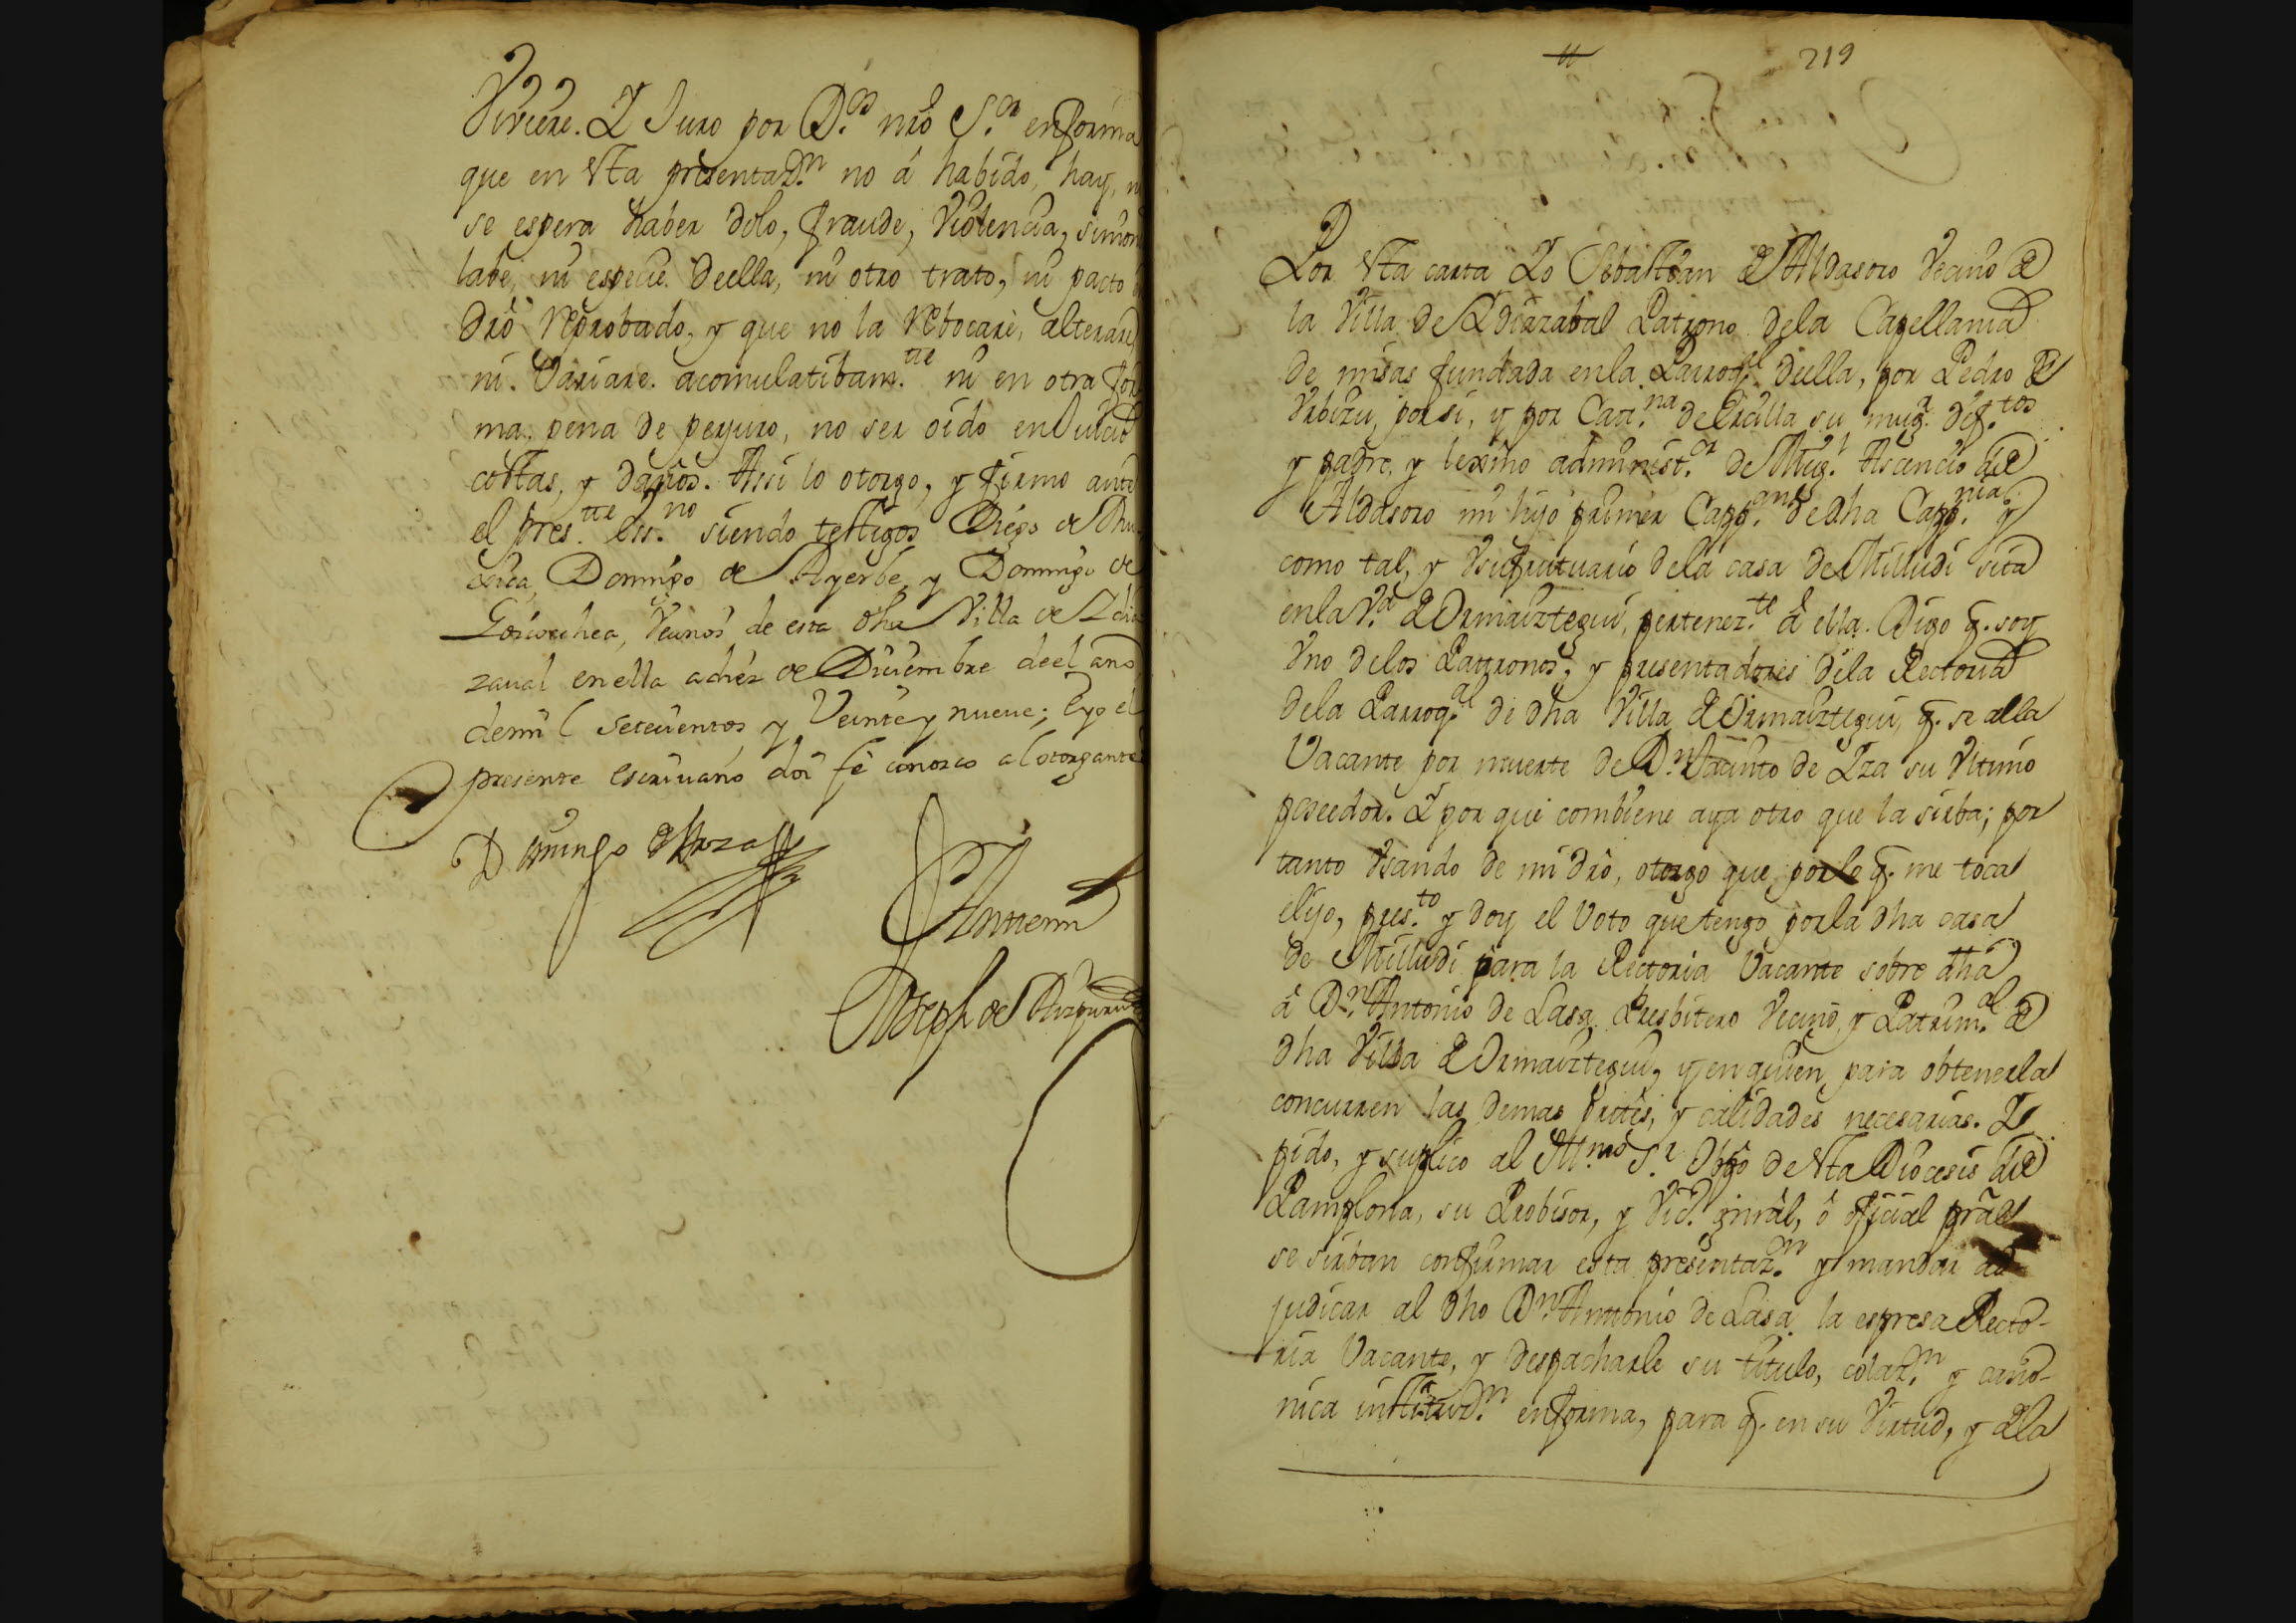 Viviere. Y Juro por D.s nrô S.or en forma
que en esta presentaz.n no á habido, hay, ni
se espera haber dolo, fraude, Violencia, simon
labe, ni especie deella, ni otro trato, ni pacto
drô reprobado, y que no la rebocare, alterare
ni. Variare. acomulatibam.tte ni en otra for
ma, pena de perjuro, no ser oido en Juicio
costas, y daños. Assi lo otorgo, y firmo ante
el pres.tte ess.no siendo testigos Diego de
Domingo de Ayerbe, y Domingo de
Goicoechea, Vecinos de esta dha Villa de Ydia
zaual en ella a diez de Diciembre de el año
de mil setecientos y Veinte y nueue; Eyo el
presente escriuano doi fe conozco al otorgante
Domingo de Arza
Antemi
Joseph de Aizpuru
219
Por esta carta Yo Sebastian de Aldasoro Vecino de
la Villa de Ydiazabal Patrono dela Capellania
de misas fundada enla Parroq.l deella, por Pedro de
Vrbizu, por si, y por Cata.na de su mug.r dif.tos
y padre, y lexmo administ.or de Mig.l Ascencio de
Aldasoro mi hijo primer Capp.an de dha Capp.nia y
como tal, y Vsufrutuario dela casa de Milludi sita
enla V.a de Ormaiztegui, pertenez.te á ella. Digo q. soy
Vno delos Patronos, y presentadores dela Rectoria
dela Parroq.al de dha Villa de Ormaiztegui, q. se alla
Vacante por muerte de D.n Jacinto de Yza su Vltimo
poseedor. Y por que combiene aya otro que la sirba; por
tanto Vsando de mi drô, otorgo que por lo q. me toca
elijo, pres.to y doy el Voto que tengo por la dha casa
de Milludi para la Rectoria Vacante sobre dha
á D.n Antonio de Lasa Presbitero Vecino, y Patrim.al de
dha Villa de Ormaiztegui, y en quien para obtenerla
concurren las demas prttês, y calidades necesarias. Y
pido, y suplico al Ill.mo S.r Obpo de esta Diocesis de
Pamplona, su Probisor, y Vic.o gnrâl, ô oficial prâl
se sirban confirmar esta presentaz.n y mandar ad-
judicar al dho D.n Antonio de Lasa la espresa Recto-
ria Vacante, y despacharle su titulo, colaz.n y cano-
nica instituz.n en forma, para q. en su Virtud, y dela